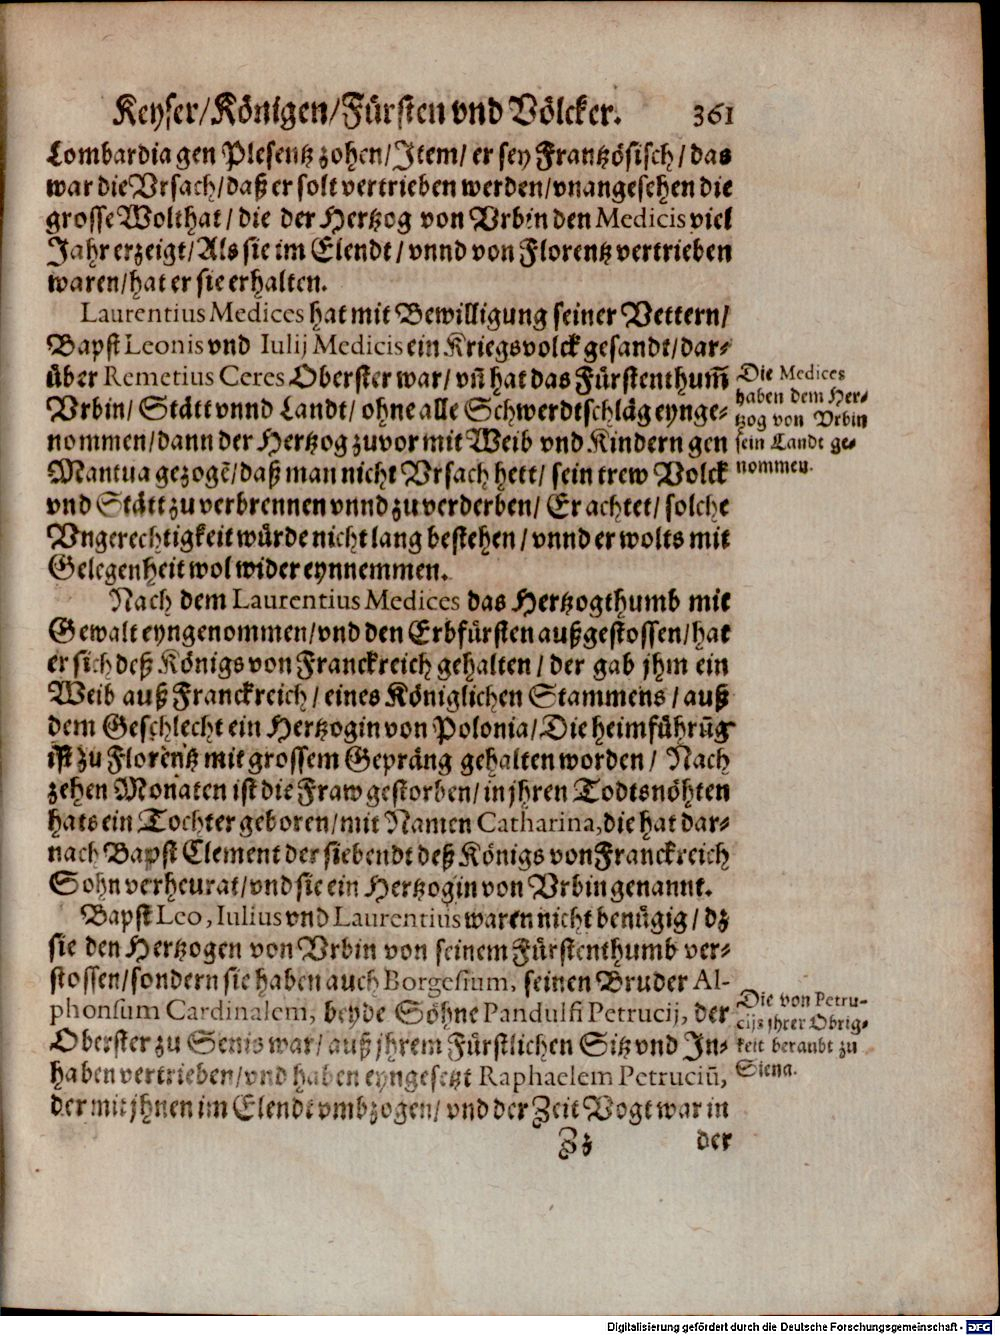 Keyser/Königen/Fürsten vnd Völcker. 361
Lombardia gen Plesentz zohen/Item/ er sey Frantzösisch/das
war die Vrsach/daß er solt vertrieben werden/vnangesehen die
grosse Wolthat/die der Hertzog von Vrbin den Medicis viel
Jahr erzeigt/Als sie im Elendt/vnnd von Florentz vertrieben
waren/hat er sie erhalten.
Laurentius Medices hat mit Bewilligung seiner Vettern/
Bapst Leonis vnd Iulij Medicis ein Kriegsvolck gesandt/dar-
über Remetius Ceres Oberster war/vñ hat das Fürstenthum̃
Vrbin/Stätt vnnd Landt/ohne alle Schwerdtschläg eynge-
nommen/dann der Hertzog zuvor mit Weib vnd Kindern gen
Mantua gezogẽ/daß man nicht Vrsach hett/sein trew Volck
vnd Stätt zu verbrennen vnnd zu verderben/Er achtet/solche
Vngerechtigkeit würde nicht lang bestehen/vnnd er wolts mit
Gelegenheit wol wider eynnemmen.
Die Medices
haben dem Her-
tzog von Vrbin
sein Landt ge-
nommen.
Nach dem Laurentius Medices das Hertzogthumb mit
Gewalt eyngenommen/vnd den Erbfürsten außgestossen/hat
er sich deß Königs von Franckreich gehalten/der gab jhm ein
Weib auß Franckreich/eines Königlichen Stammens/auß
dem Geschlecht ein Hertzogin von Polonia/Die heimführũg
ist zu Florentz mit grossem Gepräng gehalten worden/Nach
zehen Monaten ist die Fraw gestorben/in jhren Todtsnöhten
hats ein Tochter geboren/mit Namen Catharina,die hat dar-
nach Bapst Clement der siebendt deß Königs von Franckreich
Sohn verheurat/vnd sie ein Hertzogin von Vrbin genannt.
Bapst Leo, Iulius vnd Laurentius waren nicht benügig/dz
sie den Hertzogen von Vrbin von seinem Fürstenthumb ver-
stossen/sondern sie haben auch Borgesium, seinen Bruder Al-
phonsum Cardinalem, beyde Söhne Pandulfi Petrucij, der
Oberster zu Senis war/auß jhrem Fürstlichen Sitz vnd In-
haben vertrieben/vnd haben eyngesetzt Raphaelem Petruciũ,
der mit jhnen im Elendt vmbzogen/vnd der Zeit Vogt war in
Die von Petru-
cijs jhrer Obrig-
keit beraubt zu
Siena.
Zz der
Digitalisierung gefördert durch die Deutsche Forschungsgemeinschaft - DFG